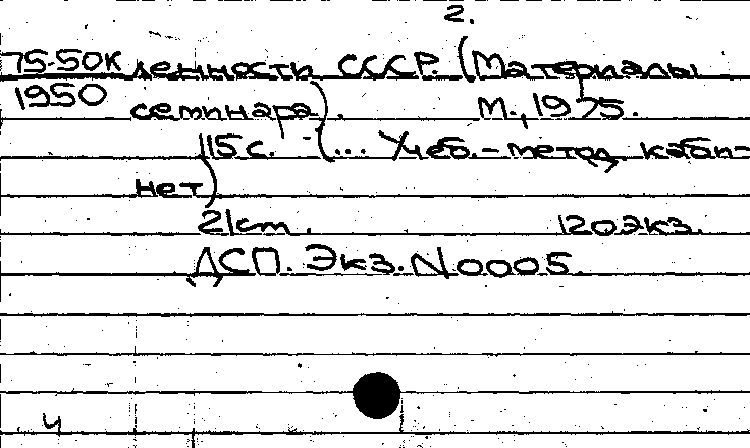 2.
75-50к ленности СССР. (Материалы
1950 семинара). М., 1975.
115 с. - (... Учеб. - метод. каби-
нет)
21 cm. 120 экз.
ДСП. Экз. N 0005.
ч